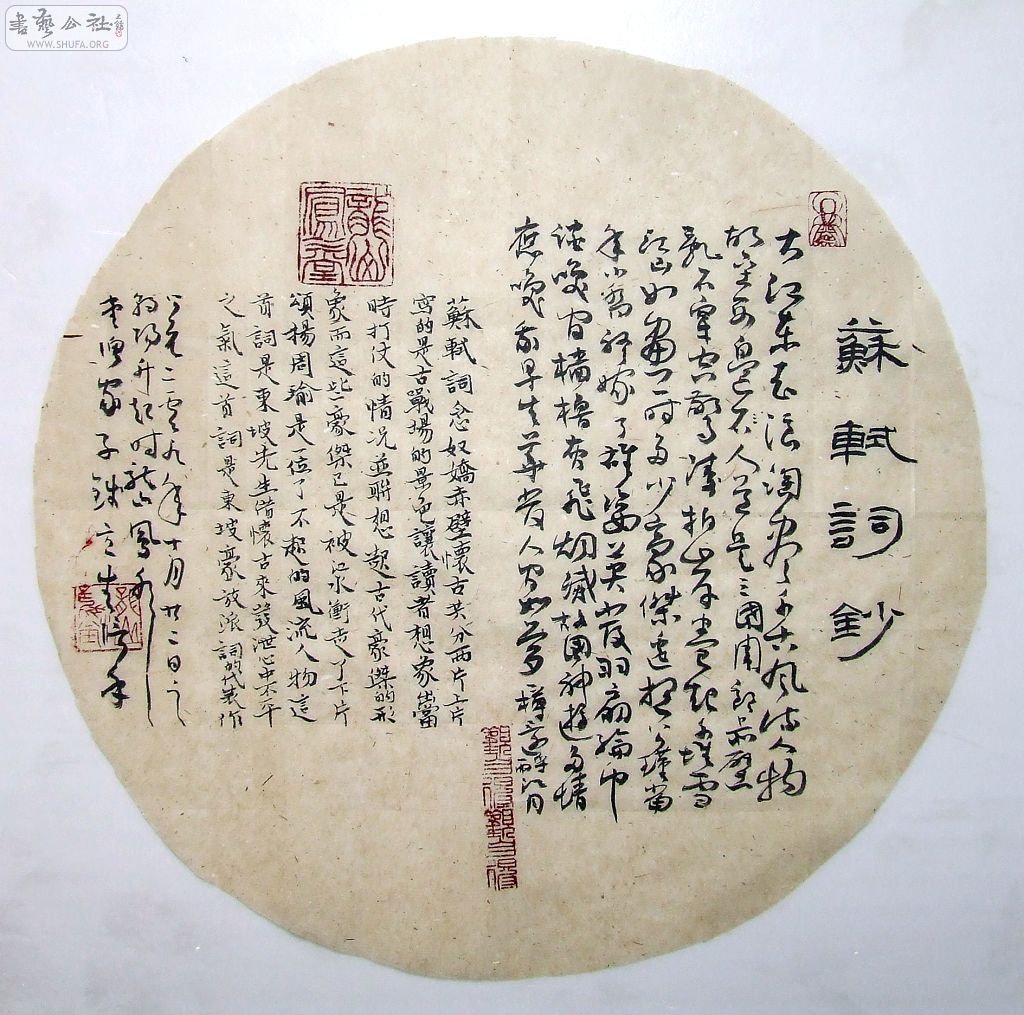 書藝公社
WWW.SHUFA.ORG
蘇軾詞鈔
大江東去浪淘盡千古風流人物
故壘西邊人道是三國周郎赤壁
亂石穿空驚濤拍岸卷起千堆雪
江山如畫一時多少豪傑遙想公瑾當
年小喬初嫁了雄姿英發羽扇綸巾
談笑間檣櫓灰飛烟滅故國神遊多情
應笑我早生華發人間如夢樽還酹江月
蘇軾詞念奴嬌赤壁懷古共分两片上片
寫的是古戰場的景色讓讀者想象出當
時打仗的情况並聯想起古代豪傑的形
象而這些豪傑已是被江水衝走了下片
頌揚周瑜是一位了不起的風流人物這
首詞是東坡先生借懷古來發泄心中不平
之氣這首詞是東坡豪放派詞的代表作
公元二零九年十月廿二日之
初陽升起時龍山鳳
家子
龍山鳳堂